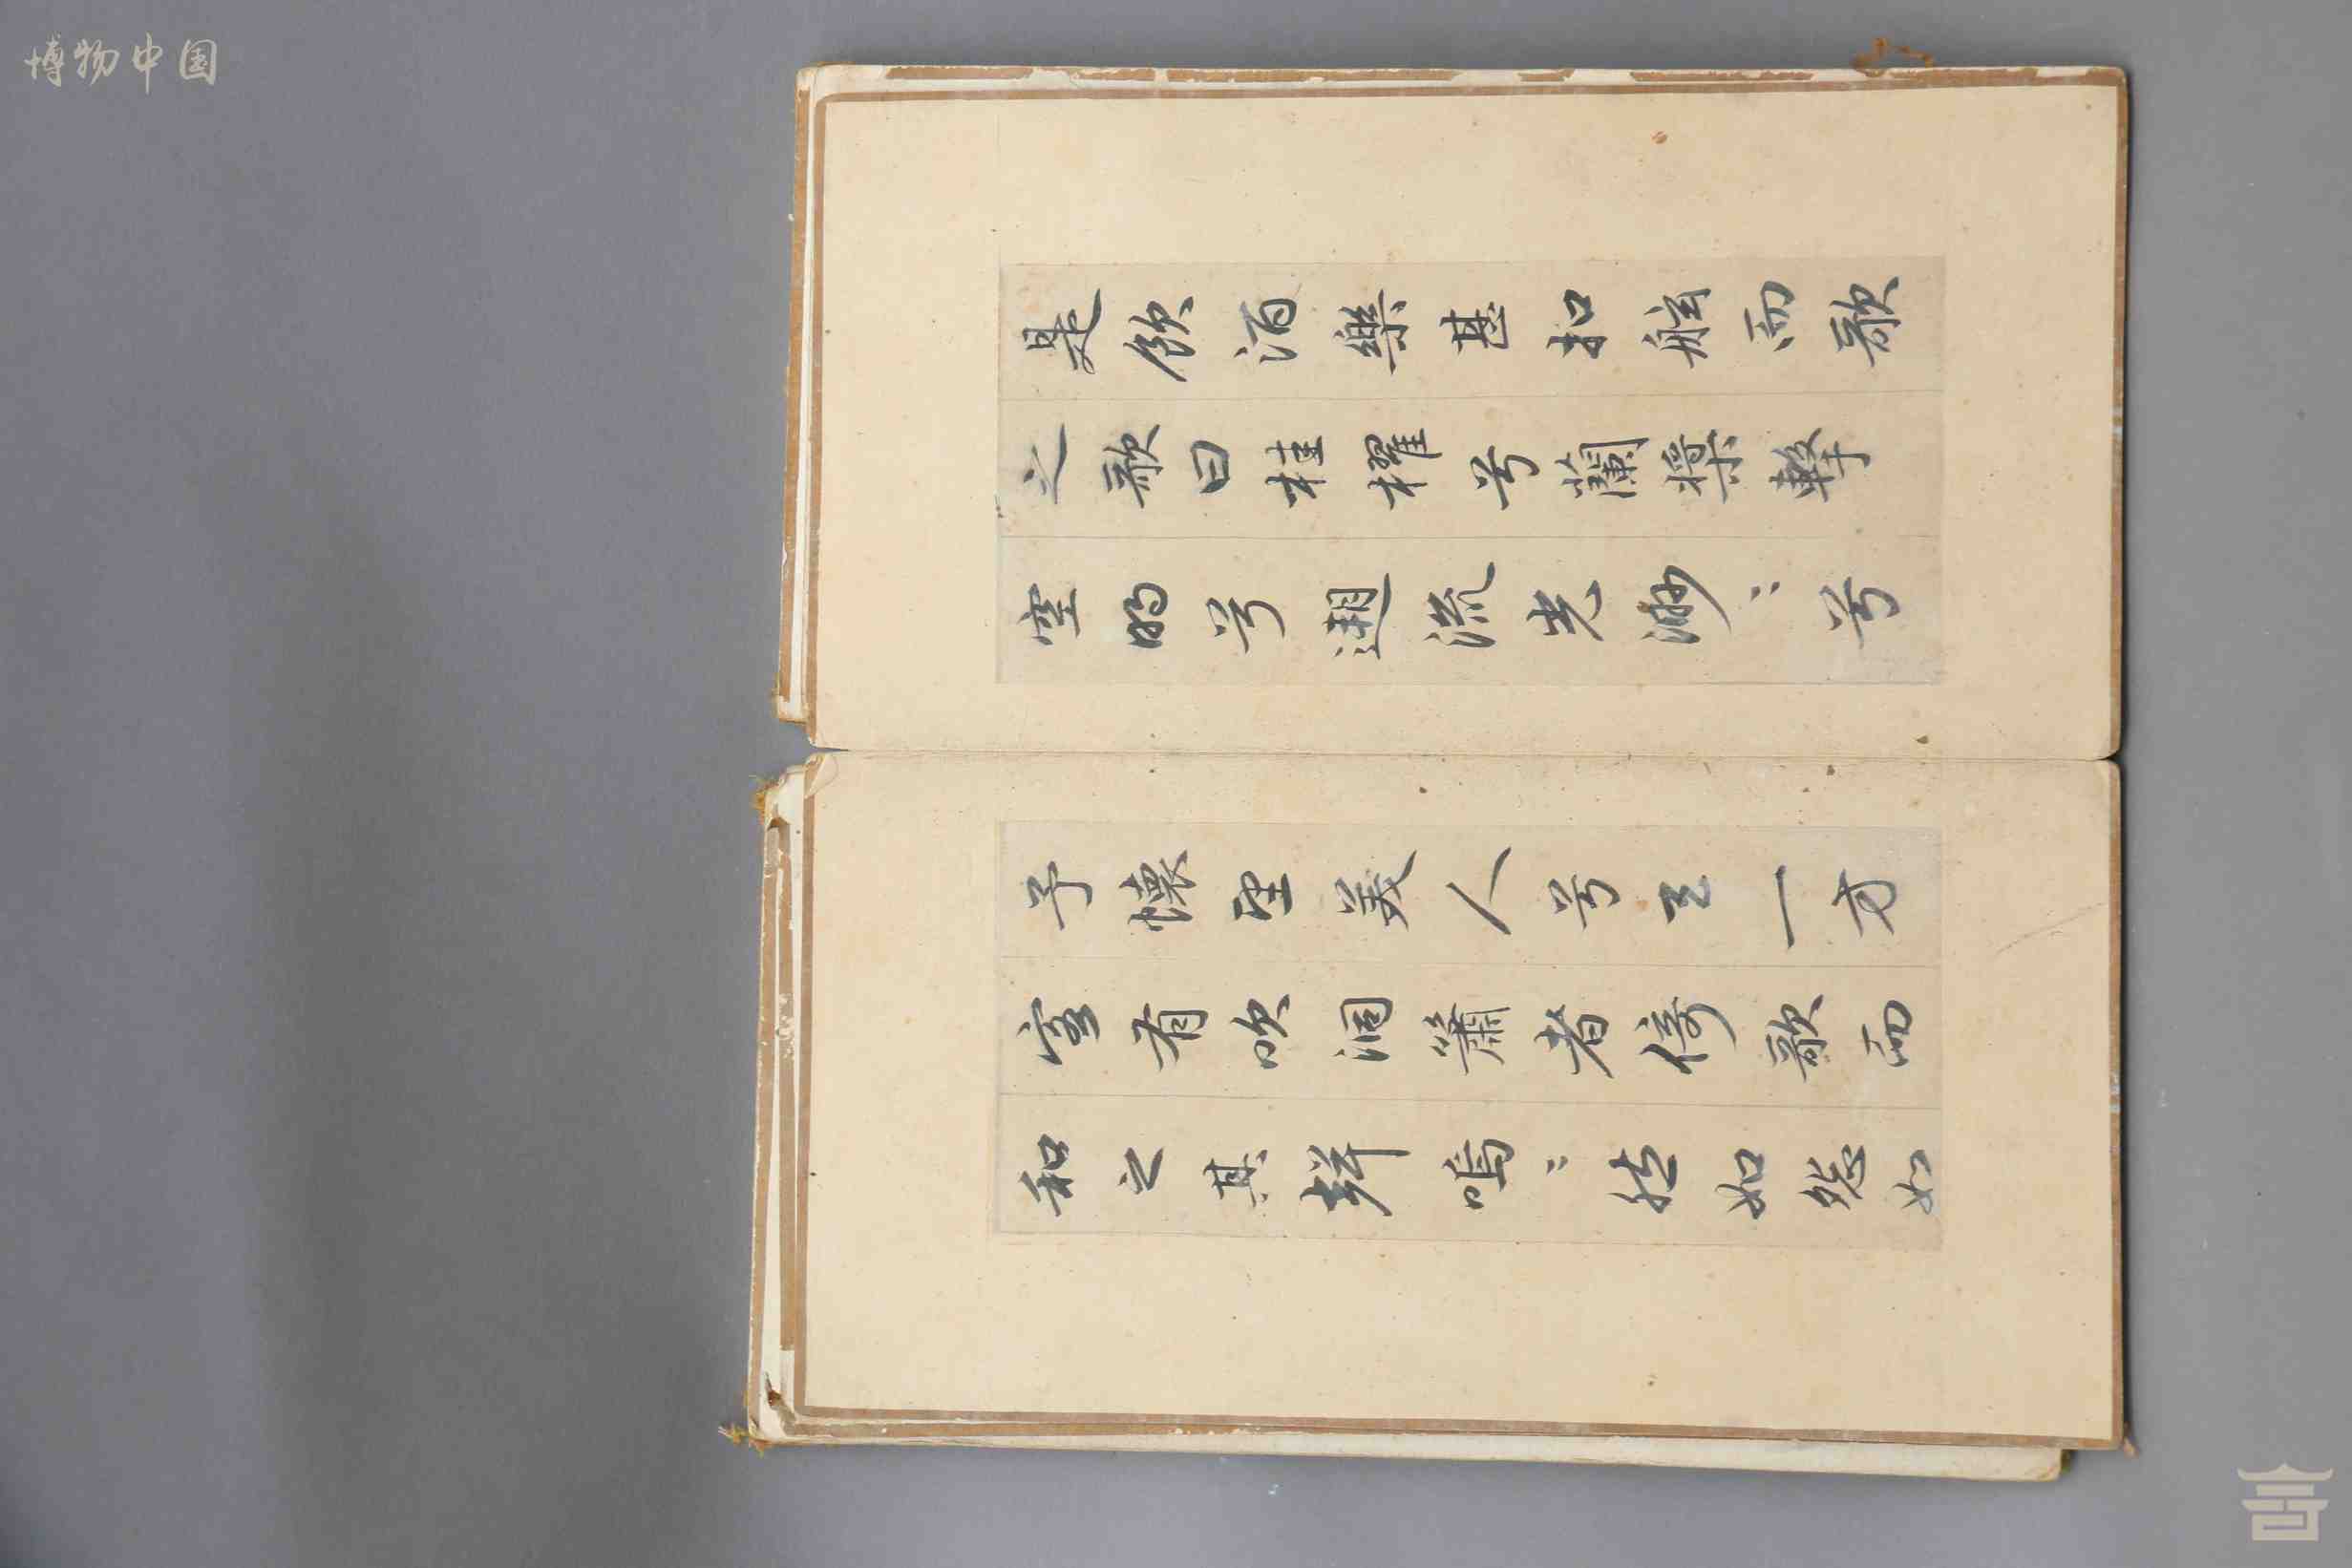 博物中国
是飲酒樂甚扣舷而歌
之歌曰桂櫂兮蘭槳擊
空明兮遡流光渺〻兮
予懷望美人兮天一方
客有吹洞簫者倚歌而
和之其聲嗚〻然如怨如